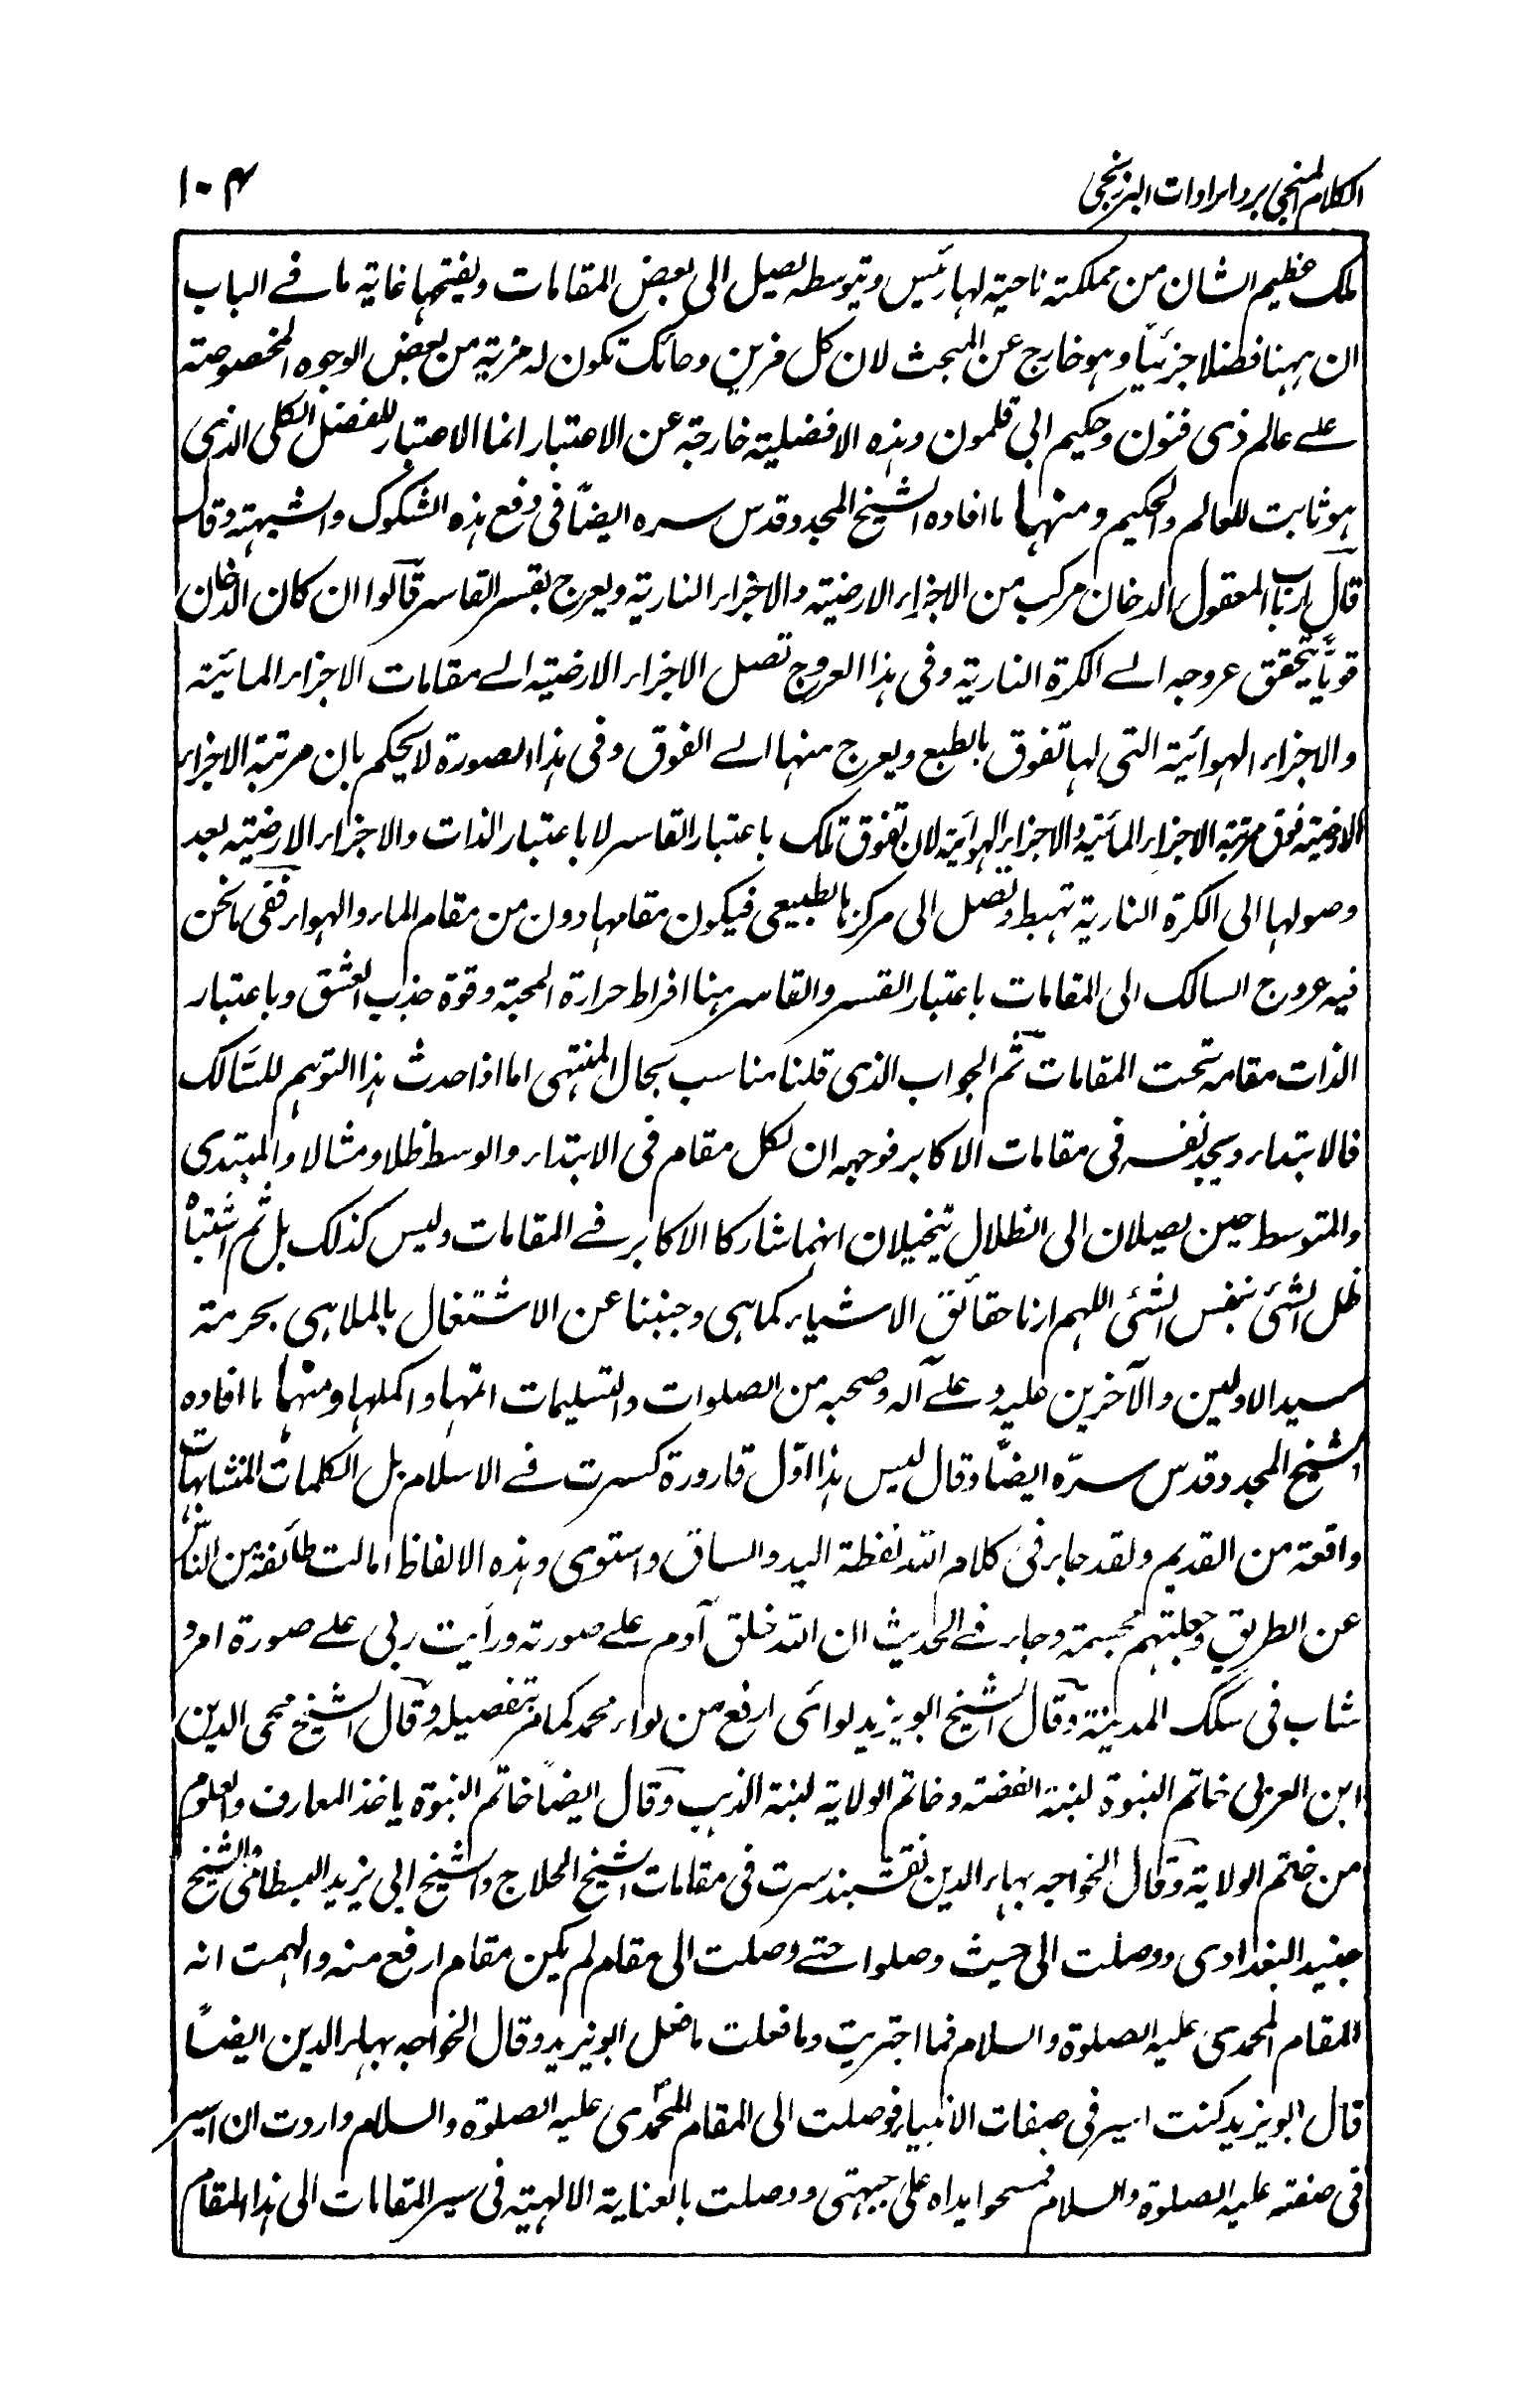 الكلام المنجى برد ايرادات البرزنجى
١٠٤
ملك عظيم الشان من مملكته ناحية لها رئيس وبتوسطه يصل الى بعض المقامات ويفتحها غاية ما فے الباب
ان ههنا فضلا جزئيًا وهو خارج عن المبحث لان كل فرين وحائك تكون له مزية من بعض الوجوه المخصوصة
علے عالم ذى فنون وحكيم ابى قلمون وهذه الافضلية خارجة عن الاعتبار انما الاعتبار للفضل الكلى الذى
هو ثابت للعالم والحكيم ومنها ما افاده الشيخ المجدد قدس سره ايضًا فى دفع هذه الشكوك والشبهة وقال
قال ارباب المعقول الدخان مركب من الاجزاء الارضية والاجزاء النارية ويعرج بقسر القاسر قالوا ان كان الدخان
قويًّا يتحقق عروجه الے الكرة النارية وفى هذا العروج تصل الاجزاء الارضية الے مقامات الاجزاء المائية
والاجزاء الهوائية التى لها تفوق بالطبع ويعرج منها الے الفوق وفى هذا الصورة لا يحكم بان مرتبة الاجزاء
الارضية فوق مرتبة الاجزاء المائية والاجزاء الهوائية لان تفوق تلك باعتبار القاسر لا باعتبار الذات والاجزاء الارضية بعد
وصولها الى الكرة النارية تهبط وتصل الى مركزها الطبيعى فيكون مقامها دون من مقام الماء والهواء ففى ما نحن
فيه عروج السالك الى المقامات باعتبار القسر والقاسر هنا افراط حرارة المحبة وقوة جذب العشق وباعتبار
الذات مقامه تحت المقامات ثم الجواب الذى قلنا مناسب بحال المنتهى اما اذا حدث هذا التوهم للسَّالك
فالابتداء ويجد نفسه فى مقامات الاكابر فوجهه ان لكل مقام فى الابتداء والوسط ظلا ومثالا والمبتدى
والمتوسط حين يصلان الى الظلال يتخيلان انهما شاركا الاكابر فے المقامات وليس كذلك بل ثم اشتباه
ظل الشئ بنفس الشئ اللهم ارنا حقائق الاشياء كما هى وجنبنا عن الاشتغال بالملاهى بحرمة
سيد الاولين والآخرين عليه وعلے آله وصحبه من الصلوات والتسليمات اتمها واكملها ومنها ما افاده
الشيخ المجدد قدس سرّه ايضًا وقال ليس هذا اوّل قارورة كسرت فے الاسلام بل الكلمات المتشابهات
واقعة من القديم ولقد جاء فى كلام الله لفظة اليد والساق واستوى وهذه الالفاظ امالت طائفة من الناس
عن الطريق وجعلتهم مجسمة وجاء فے الحديث ان الله خلق آدم علے صورته ورأيت ربى علے صورة امرد
شاب فى سكك المدينة وقال الشيخ ابو يزيد لوائى ارفع من لواء محمد كما مر تفصيله وقال الشيخ محى الدين
ابن العربى خاتم النبوة لبنة الفضة وخاتم الولاية لبنة الذهب وقال ايضًا خاتم النبوة ياخذ المعارف والعلوم
من ختم الولاية وقال الخواجه بهاء الدين نقشبند سرت فى مقامات الشيخ الحلاج والشيخ ابى يزيد البسطامى والشيخ
جنيد البغدادى ووصلت الى حيث وصلوا حتے وصلت الى مقام لم يكن مقام ارفع منه والهمت انه
المقام المحمدى عليه الصلوة والسلام فما اجتريت وما فعلت ما فعل ابو يزيد وقال الخواجه بهاء الدين ايضًا
قال ابو يزيد كنت اسير فى صفات الانبياء فوصلت الى المقام المحمّدى عليه الصلوة والسلام واردت ان اسير
فى صفته عليه الصلوة والسلام فمسحوا يداه على جبهتى ووصلت بالعناية الالهية فى سير المقامات الى هذا المقام